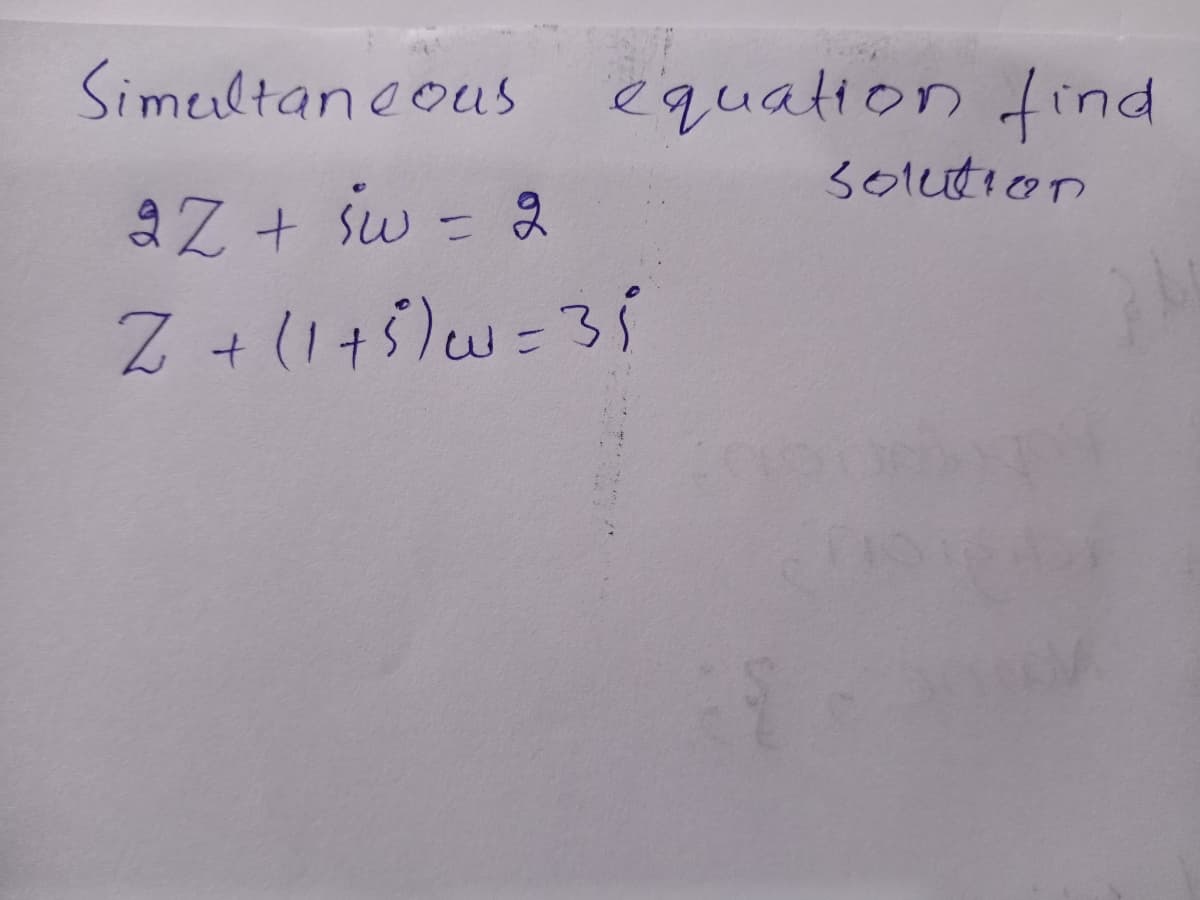 Simultaneous equation find
solution
2Z + iw = 2
Z + (1+i)w = 3i